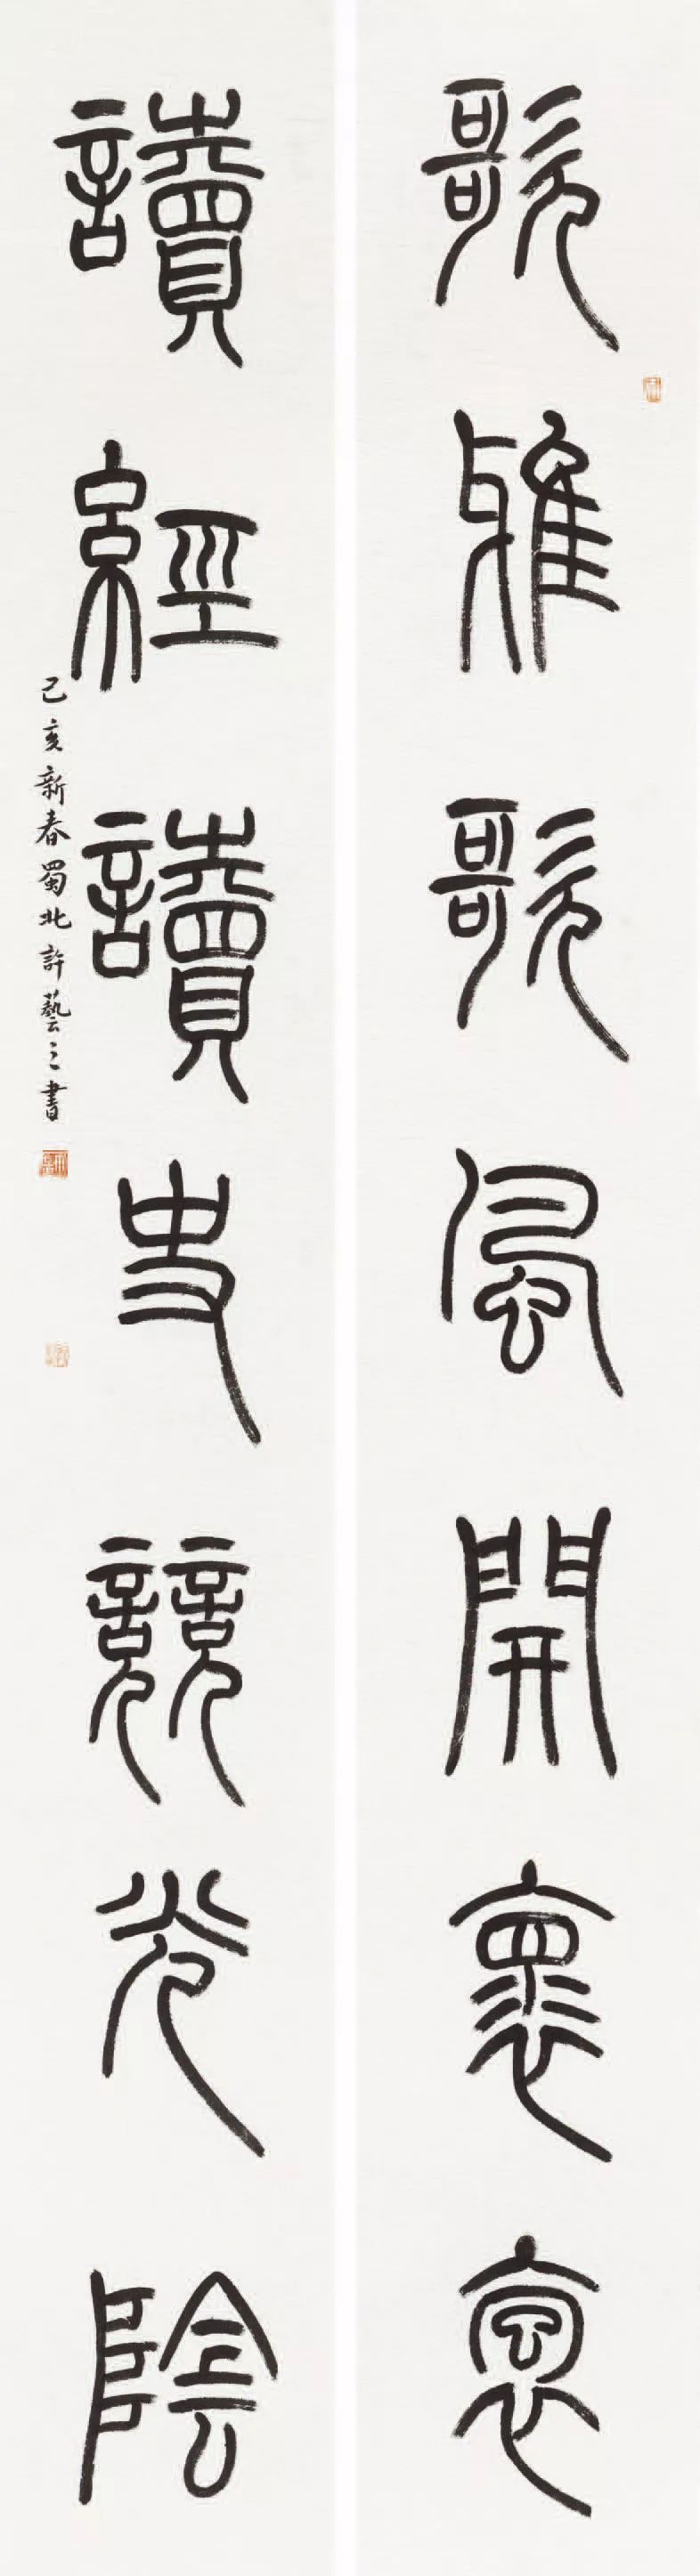 歌雅歌風開褱袌
讀經讀史競光陰
己亥新春蜀北許藝之書